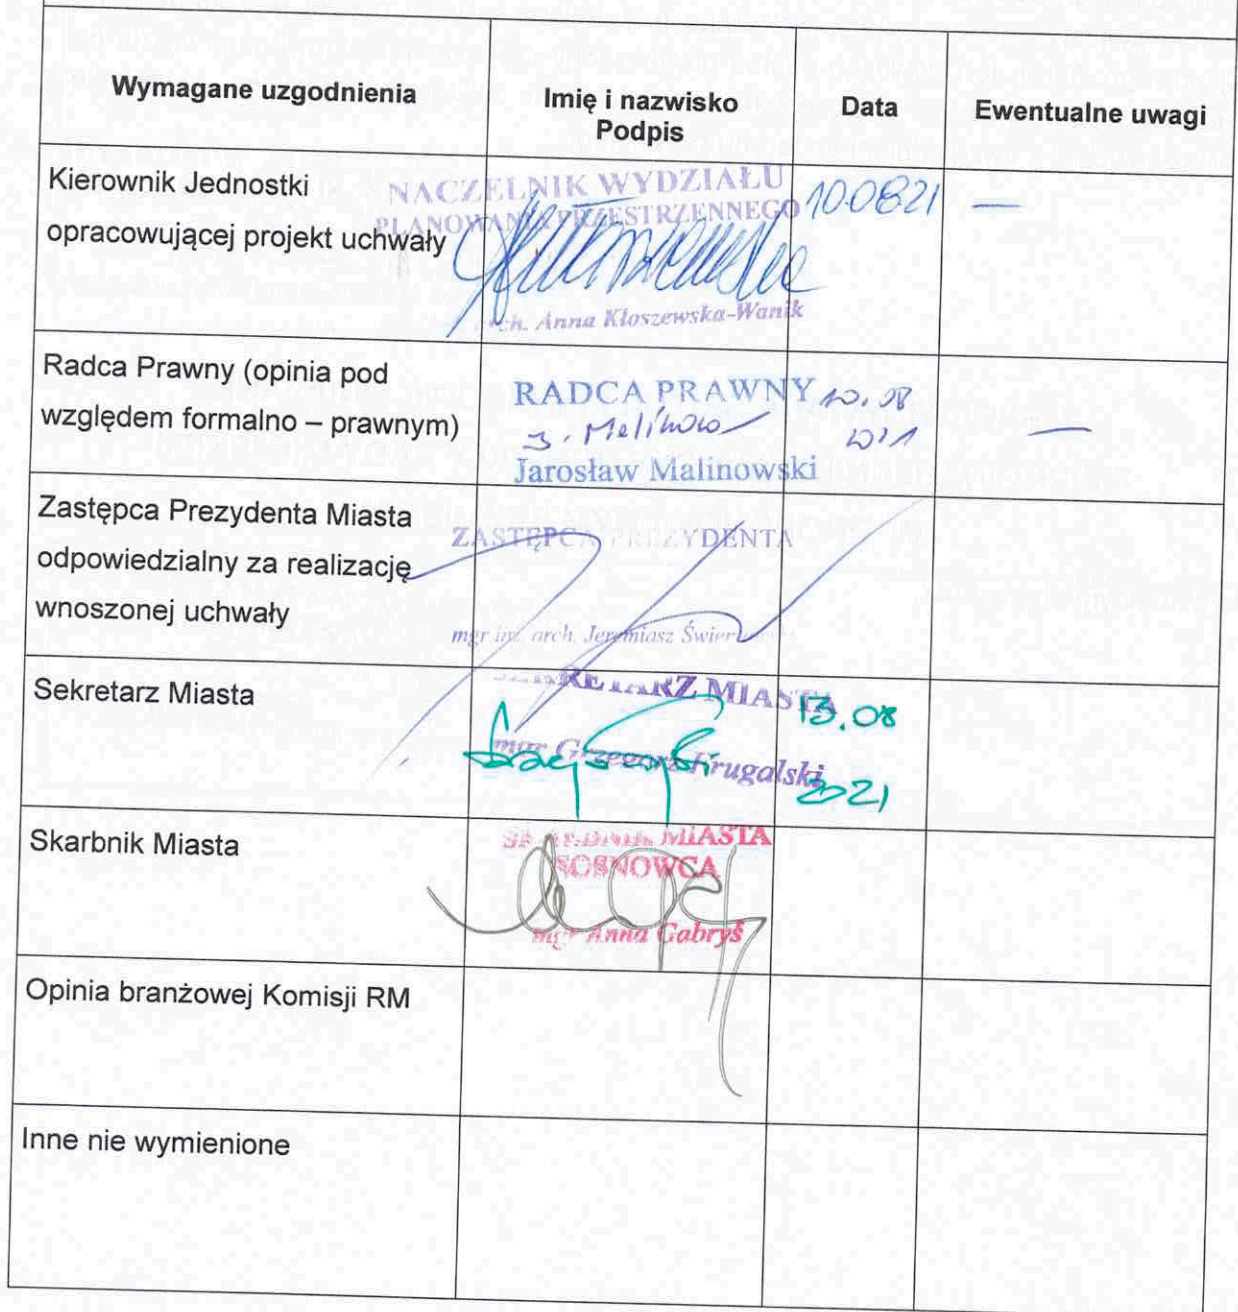 Wymagane uzgodnienia
Imię i nazwisko
Podpis
Data
Ewentualne uwagi
Kierownik Jednostki
opracowującej projekt uchwały
NACZELNIK WYDZIAŁU
PLANOWANIA PRZESTRZENNEGO
Anna Kłoszewska-Wanik
10.08.21
—
Radca Prawny (opinia pod
względem formalno – prawnym)
RADCA PRAWNY
Jarosław Malinowski
10.08
2021
—
Zastępca Prezydenta Miasta
odpowiedzialny za realizację
wnoszonej uchwały
ZASTĘPCA PREZYDENTA
mgr inż. arch. Jeremiasz
Sekretarz Miasta
SEKRETARZ MIASTA
mgr Grzegorz Frugalski
13.08
2021
Skarbnik Miasta
SKARBNIK MIASTA
SOSNOWCA
mgr Anna Gabryś
Opinia branżowej Komisji RM
Inne nie wymienione